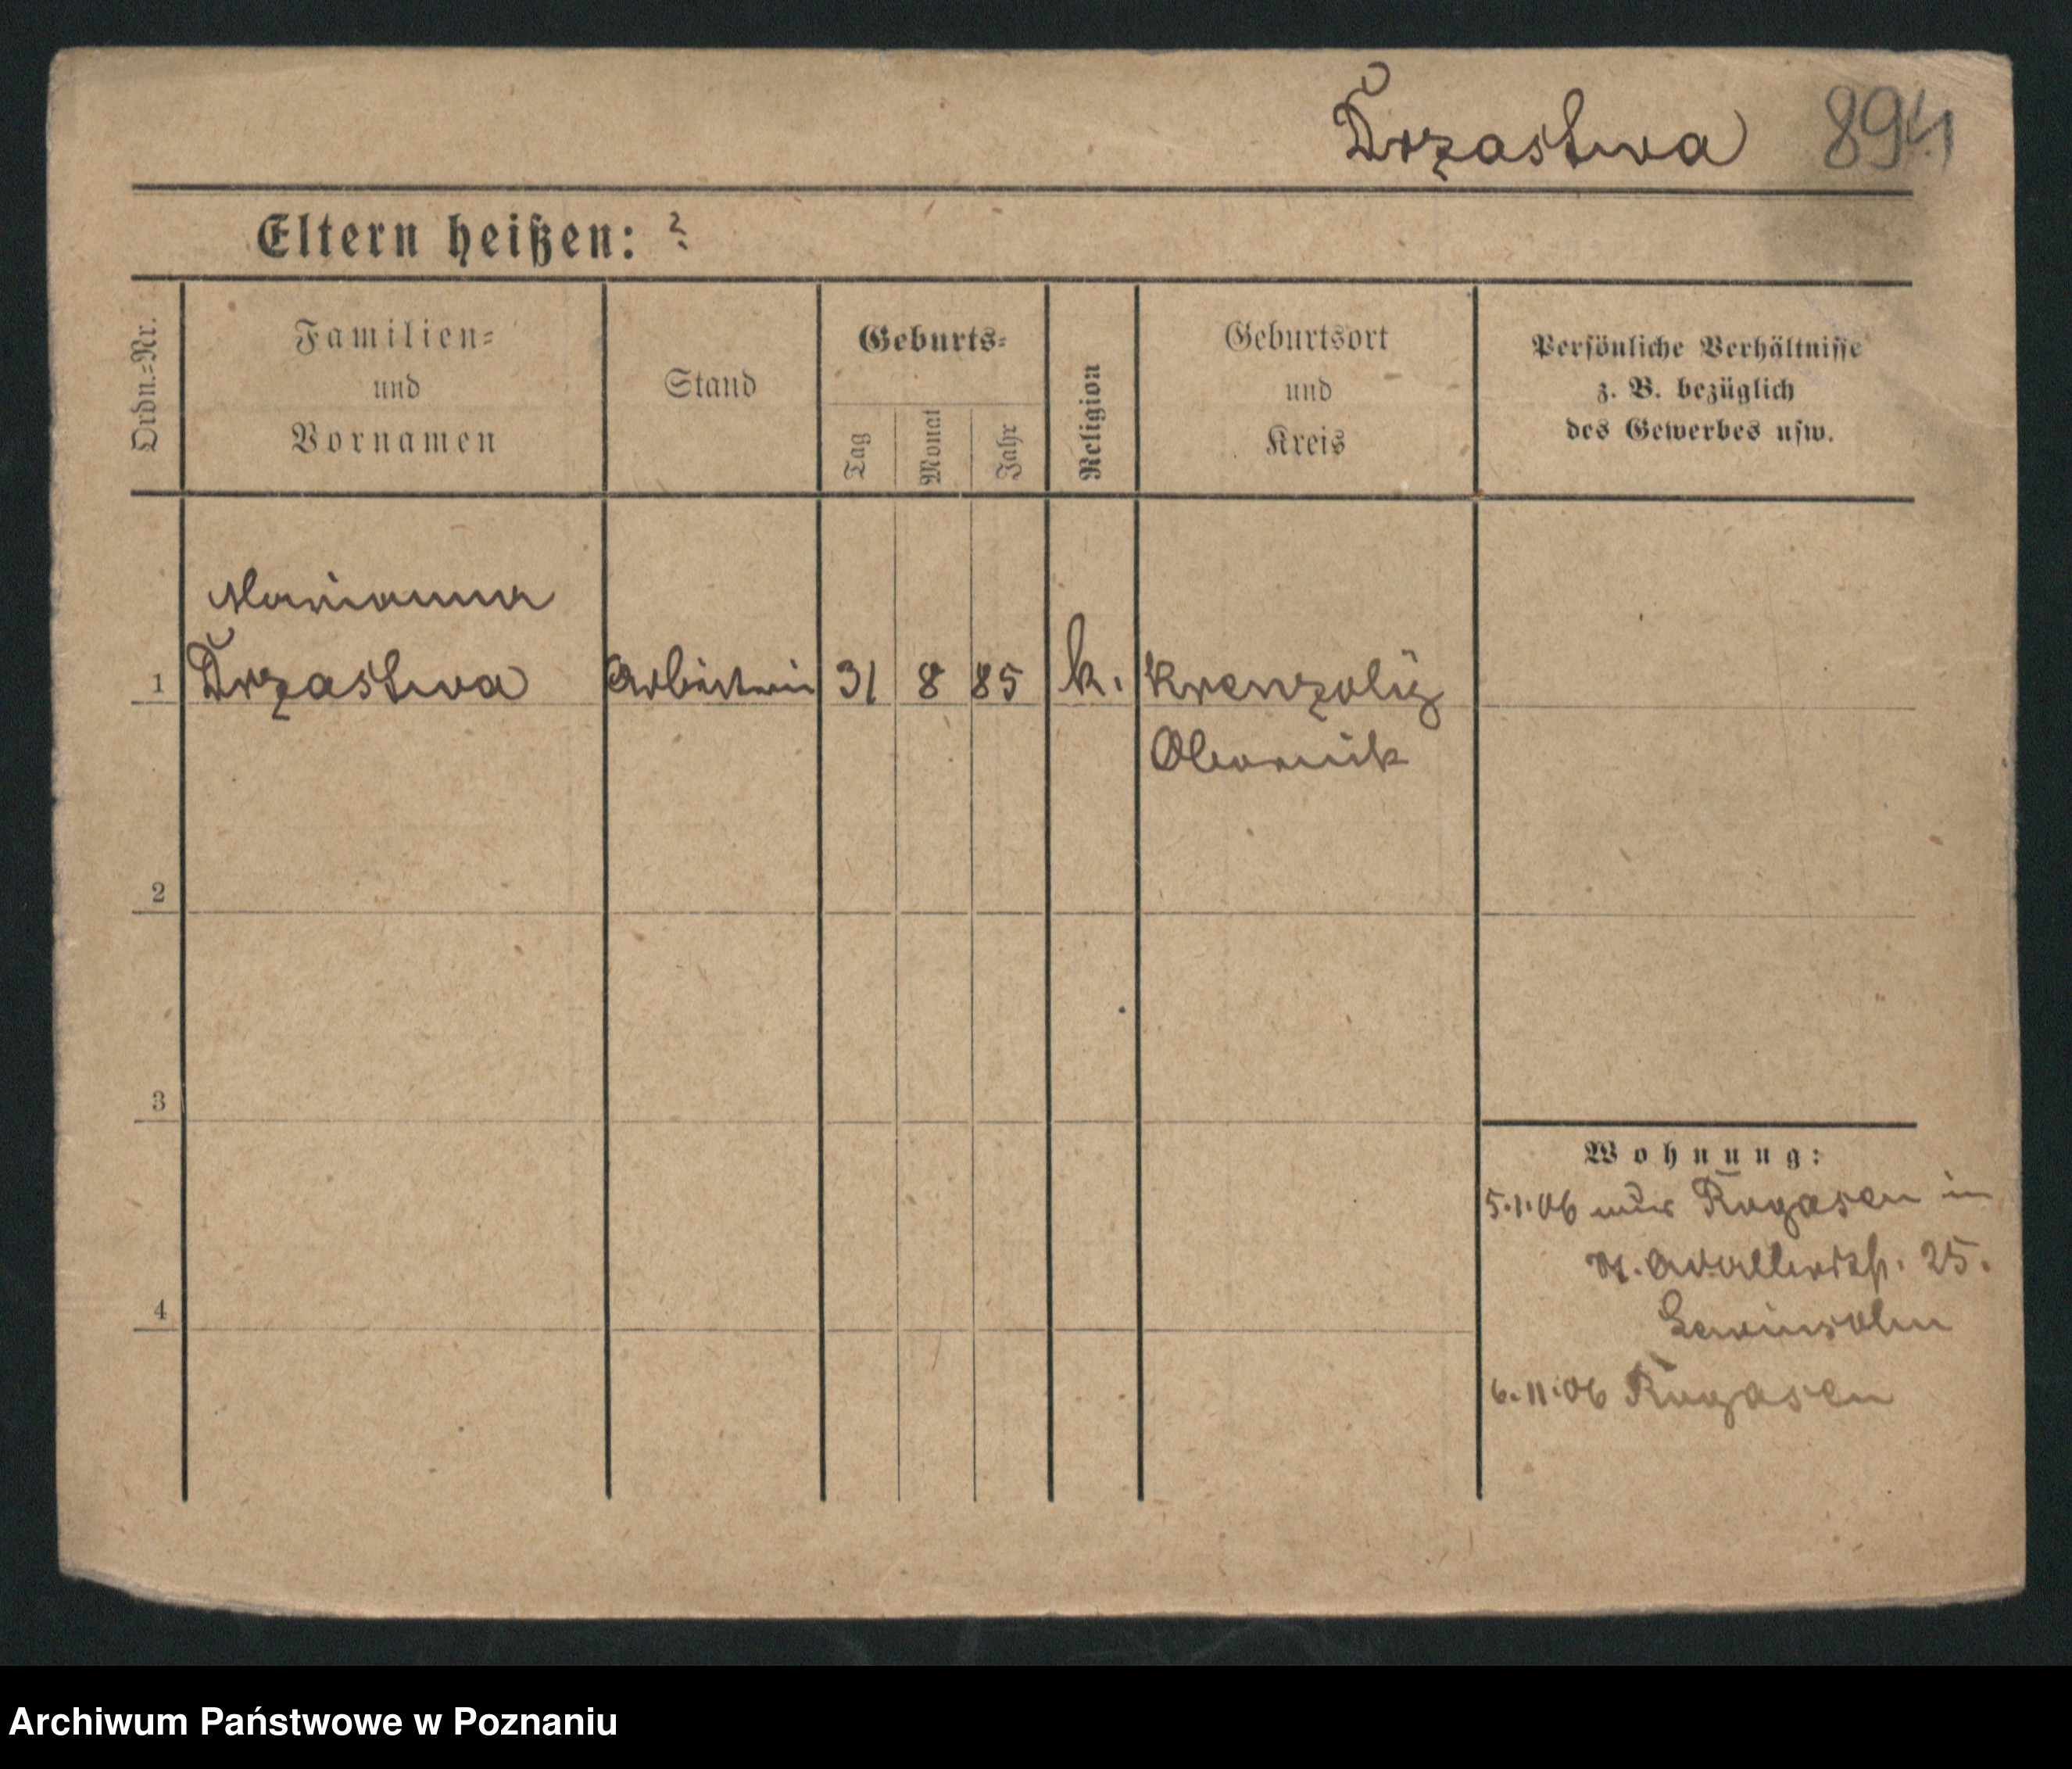 Trzastwa 894
Eltern heißen: ?
Ordn.-Nr.
Familien-
und
Vornamen
Stand
Geburts-
Tag
Monat
Jahr
Religion
Geburtsort
und
Kreis
Persönliche Verhältnisse
z. B. bezüglich
des Gewerbes usw.
Marianna
1 Trzastwa Arbeiterin 31 8 85 k.
Obornik
2
3
4
Wohnung:
5.1.06 Rogasen in
25.
Lewinsohn
6.11.06 Rogasen
Archiwum Państwowe w Poznaniu